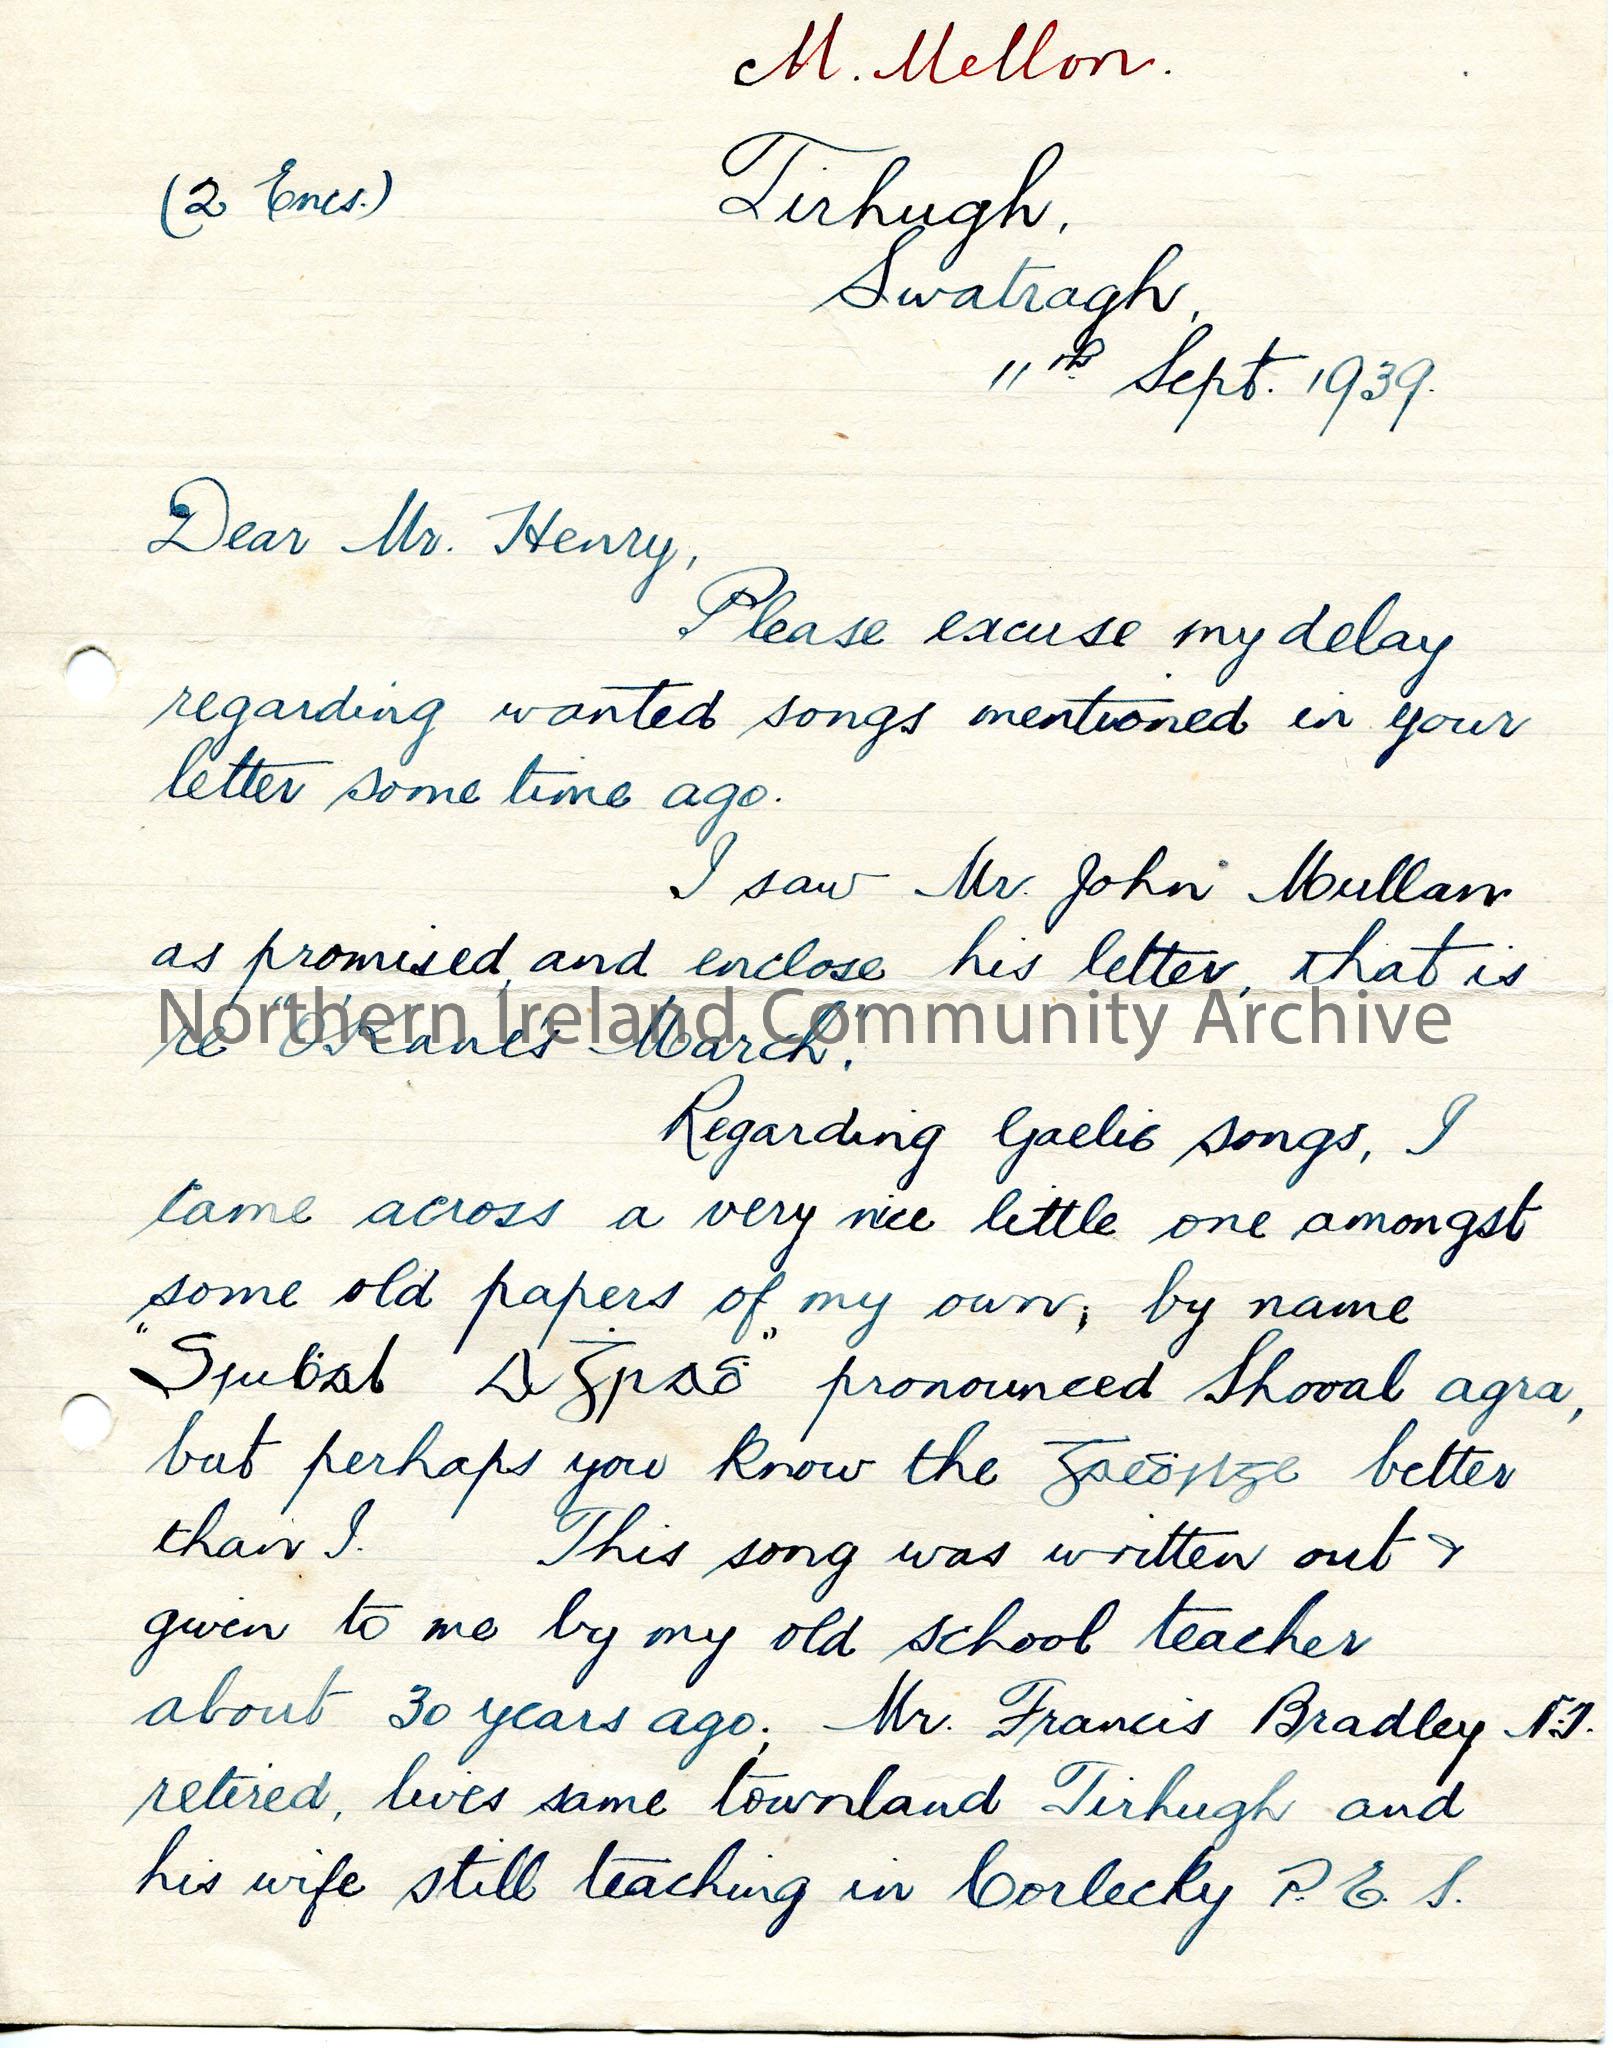 M. Mellon.
(2 Encs.)
Tirhugh,
Swatragh,
11th Sept. 1939.
Dear Mr. Henry,
Please excuse my delay
regarding wanted songs mentioned in your
letter some time ago.
I saw Mr. John Mullan
as promised, and enclose his letter, that is
re "O'Kane's March."
Northern Ireland Community Archive
Regarding Gaelic songs, I
came across a very nice little one amongst
some old papers of my own, by name
"Siuḃal a ġráḋ" pronounced Shooal agra,
but perhaps you know the better
than I. This song was written out &
given to me by my old school teacher
about 30 years ago; Mr. Francis Bradley N.T.
retired, lives same townland Tirhugh and
his wife still teaching in Corlecky P. E. S.